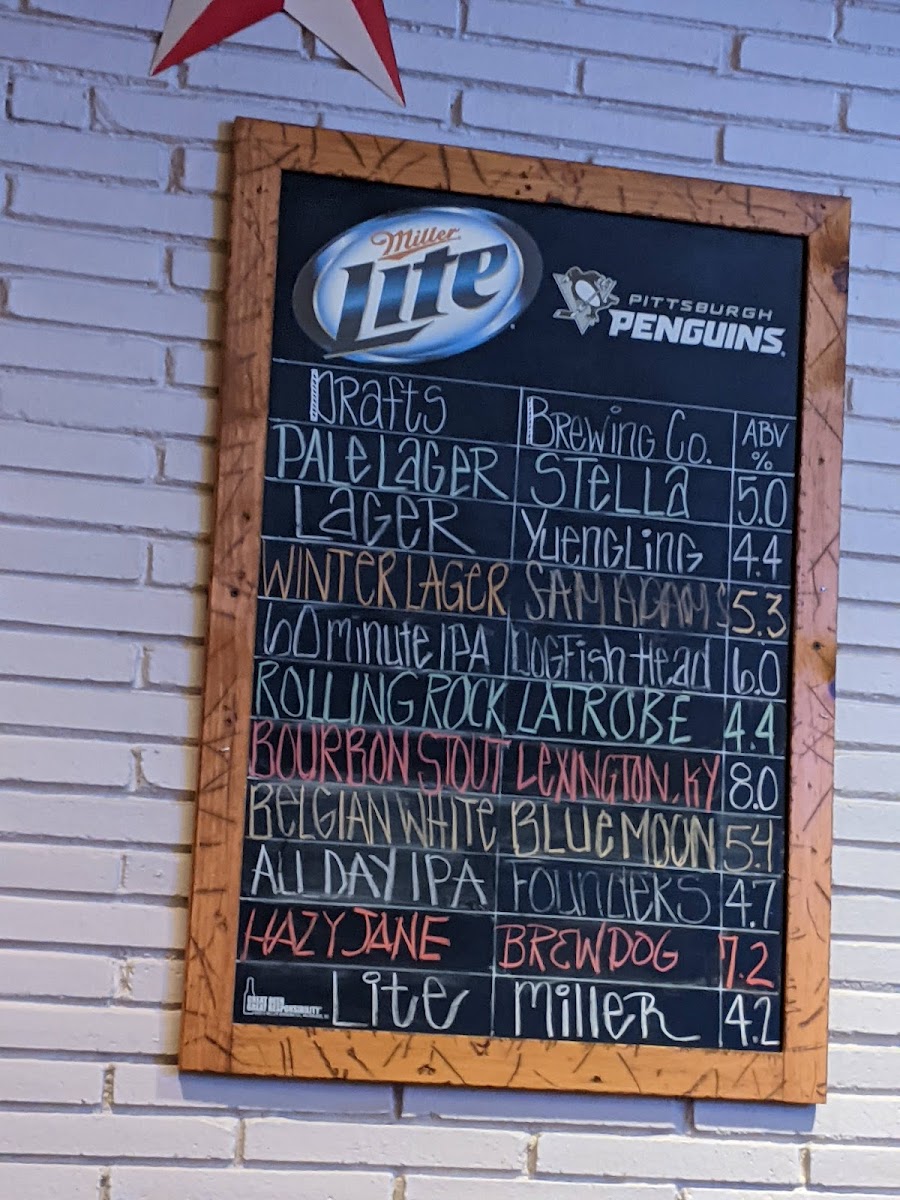 Miller
Lite
PITTSBURGH
PENGUINS
Drafts Brewing Co. ABV %
PALE LAGER STELLA 5.0
LAGER YUENGLING 4.4
WINTER LAGER SAM ADAMS 5.3
60 minute IPA DOGFISH HEAD 6.0
ROLLING ROCK LATROBE 4.4
BOURBON STOUT LEXINGTON, KY 8.0
BELGIAN WHITE BLUE MOON 5.4
ALL DAY IPA FOUNDERS 4.7
HAZY JANE BREWDOG 7.2
Lite Miller 4.2
GREAT BEER
GREAT RESPONSIBILITY